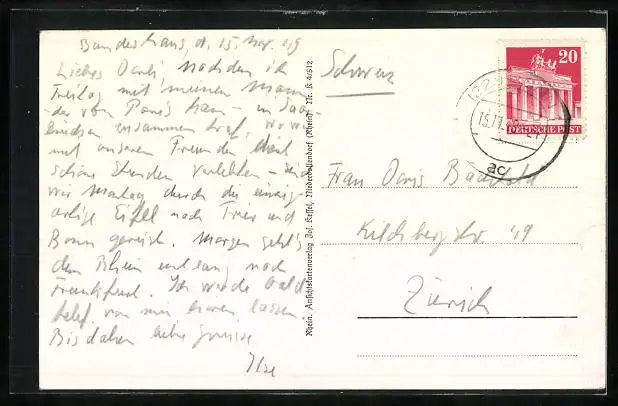 Bundeshaus, d. 15. Nov. 49
Liebes Doris, Nachdem ich
Freitag mit meinem Mann
- der von Paris kam - in Saar-
brücken zusammen traf, wo wir
mit unseren Freunden
schöne Stunden verlebten - sind
wir Montag durch die einzig-
artige Eifel nach Trier und
Bonn gereist. Morgen geht's
dem Rhein entlang nach
Frankfurt. Ich werde bald
telef. von mir hören lassen.
Bis dahin liebe Grüsse
Ilse
Rhein. Ansichtskartenverlag Jos. Kessel, Niederdollendorf (Rhein) Nr. K 4/612
Schweiz
20
DEUTSCHE POST
(22
15.11.49
ac
Frau Doris
Kilchbergstr. 49
Zürich